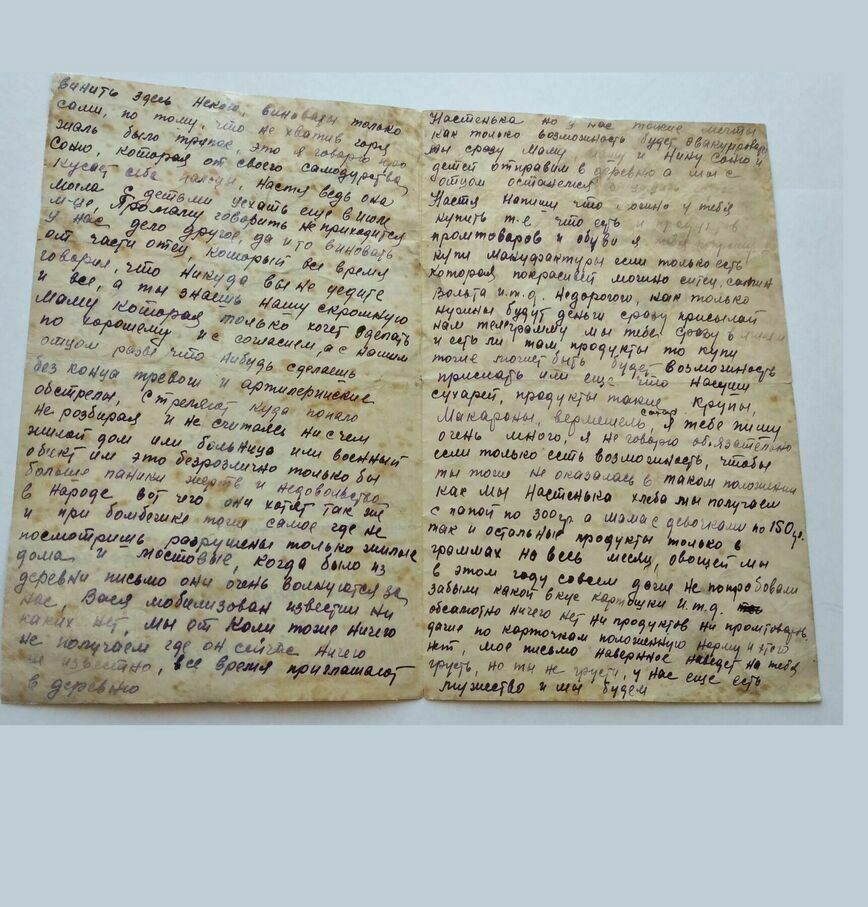 винить здесь некого, виноваты только
сами, по тому, что не хватив горя
жаль было тряпок, это я говорю про
Соню, которая от своего самодурства,
кусает себе Настя ведь она
могла с детьми уехать еще в июле
м-це, Про маму говорить не приходится
У нас дело другое, да и то виновать
от части отец, который все время
говорил, что никуда вы не уедите
и все, а ты знаешь нашу скромную
маму которая только хочет сделать
по хорошему и с согласием, а с нашим
отцом разве что нибудь сделаешь
без конца тревоги и артилерийские
обстрелы, стреляют куда попало
не розбирая и не считаясь ни с чем
жилой дом или больница или военный
обект им это безрозлично только бы
больше паники жертв и недовольство
в народе вот чего они хотят так же
и при бомбежке тоже самое где не
посмотришь разрушены только жилые
дома и мостовые, когда было из
деревни письмо они очень волнуются за
нас, Вася мобилизован известии ни
каких нет, мы от Коли тоже ничего
не получаем где он сейчас ничего
не известно, все время приглашают
в деревню
Настенька но у нас такие мечты
как только возможность будет эвакуироват
мы сразу маму и Нину Соню и
детей отправим в деревню а мы с
отцом останемся
Настя Напиши что можно у тебя
купить т.е. что есть
промтоваров и обуви я
купи Мануфактуры если только есть
которая покрасивей можно ситец, сатин
Вольта и.т.д. Недорогого, как только
нужны будут деньги сразу присылай
нам телеграмму мы тебе сразу
и есть ли там продукты то купи
тоже может быть будет возможность
прислать или еще что насуши
сухарей, продукты такие крупы,
Макароны, вермишель, сахар, я тебе пишу
очень много, я не говорю обязательно
если только есть возможность, чтобы
ты тоже не оказалась в таком положении
как мы Настенька хлеба мы получаем
с папой по 300 гр а мама с девочками по 150 гр.
так и остальные продукты только в
граммах на весь месяц, овощей мы
в этом году совсем даже не попробовали
забыли какой вкус картошки и.т.д.
обсалютно ничего нет ни продуктов ни промтоваров
даже по карточкам положенную норму и этого
нет, мое письмо наверное наведет на тебя
грусть, но ты не грусти, у нас еще есть
мужество и мы будем